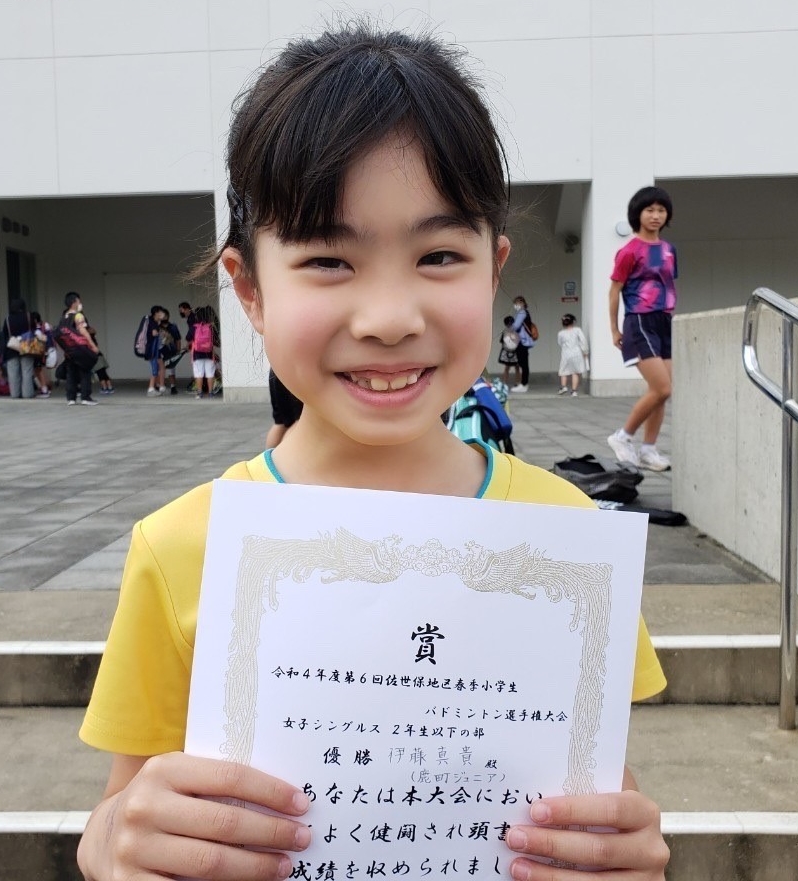 賞
令和4年度第6回佐世保地区春季小学生
バドミントン選手権大会
女子シングルス 2年生以下の部
優勝 伊藤真貴 殿
(鹿町ジュニア)
あなたは本大会におい
よく健闘され頭書
成績を収められまし